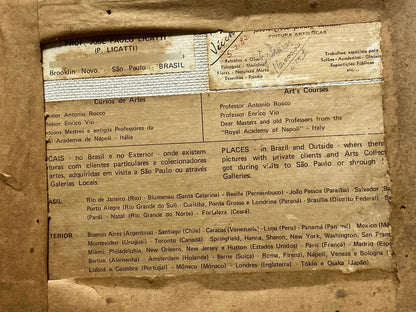 PROF. JOSÉ PAULO LICATTI
(P. LICATTI)
Brooklin Novo. São Paulo - BRASIL
PINTURA ARTÍSTICAS
Retratos a Óleo
Paisagens - Marinhas
Flores - Natureza Morta
Desenhos - Pastéis
Trabalhos especiais para
Salões - Academias - Clubes
Repartições Públicas
etc.
Cursos de Artes
Professor Antonio Rocco
Professor Enrico Vio
Mestres e antigos Professores da
Academia de Nápoli - Itália
Art's Courses
Professor Antonio Rocco
Professor Enrico Vio
Dear Masters and old Professors from the
"Royal Academy of Napoli" - Italy
LOCAIS - no Brasil e no Exterior - onde existem
pinturas com clientes particulares e colecionadores
artes, adquiridas em visita a São Paulo ou através
Galerias Locais.
PLACES - in Brazil and Outside - when there
pictures with private clients and Arts Collec
got during visits to São Paulo or through
Galleries.
BRASIL Rio de Janeiro (Rio) - Blumenau (Santa Catarina) - Recife (Pernambuco) - João Pessoa (Paraíba) Salvador (Ba
Porto Alegre (Rio Grande do Sul) - Curitiba, Ponta Grossa e Londrina (Paraná) - Brasília (Distrito Federal) - Be
(Pará) - Natal (Rio Grande do Norte) - Fortaleza (Ceará).
EXTERIOR - Buenos Aires (Argentina) - Santiago (Chile) - Caracas (Venezuela) - Lima (Peru) - Panamá (Panamá) - Mexico (Me
Montevideo (Uruguai) - Toronto (Canadá) - Springfield, Hanna, Sharon, New York, Washington, San Fran
Miami, Philadelphia, New Orleans, New Jersey e Huston (Estados Unidos) - Paris (França) - Madrid (Esp
Berlim (Alemanha) - Amsterdam (Holanda) - Berne (Suíça) - Roma, Firenzi, Napoli, Veneza e Bologna (
Lisboa e Coimbra (Portugal) - Mônaco (Mônaco) - Londres (Inglaterra) - Tókio e Osaka (Japão).